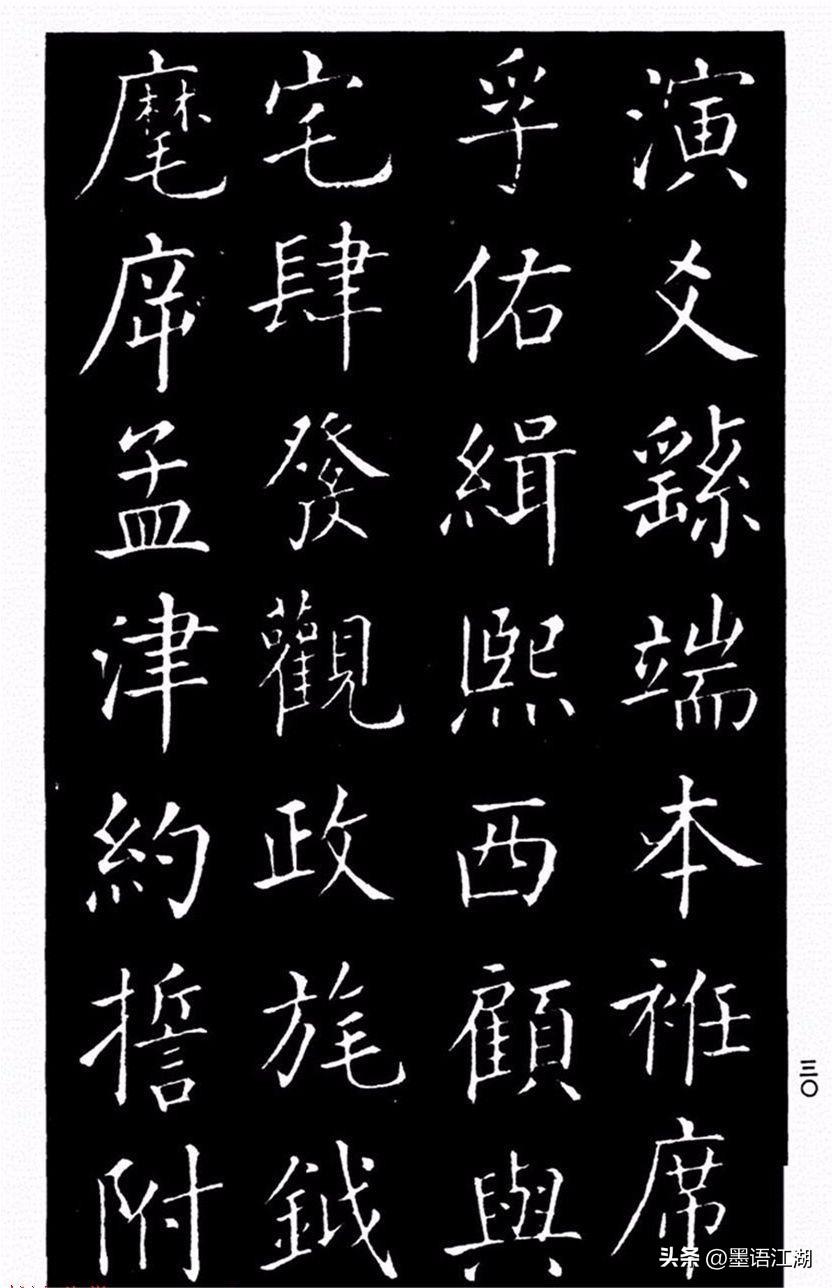 演爻繇端本袵席
孚佑緝熙西顧與
宅肆發觀政旄鉞
麾㡿孟津約誓附
三〇
头条 @墨语江湖